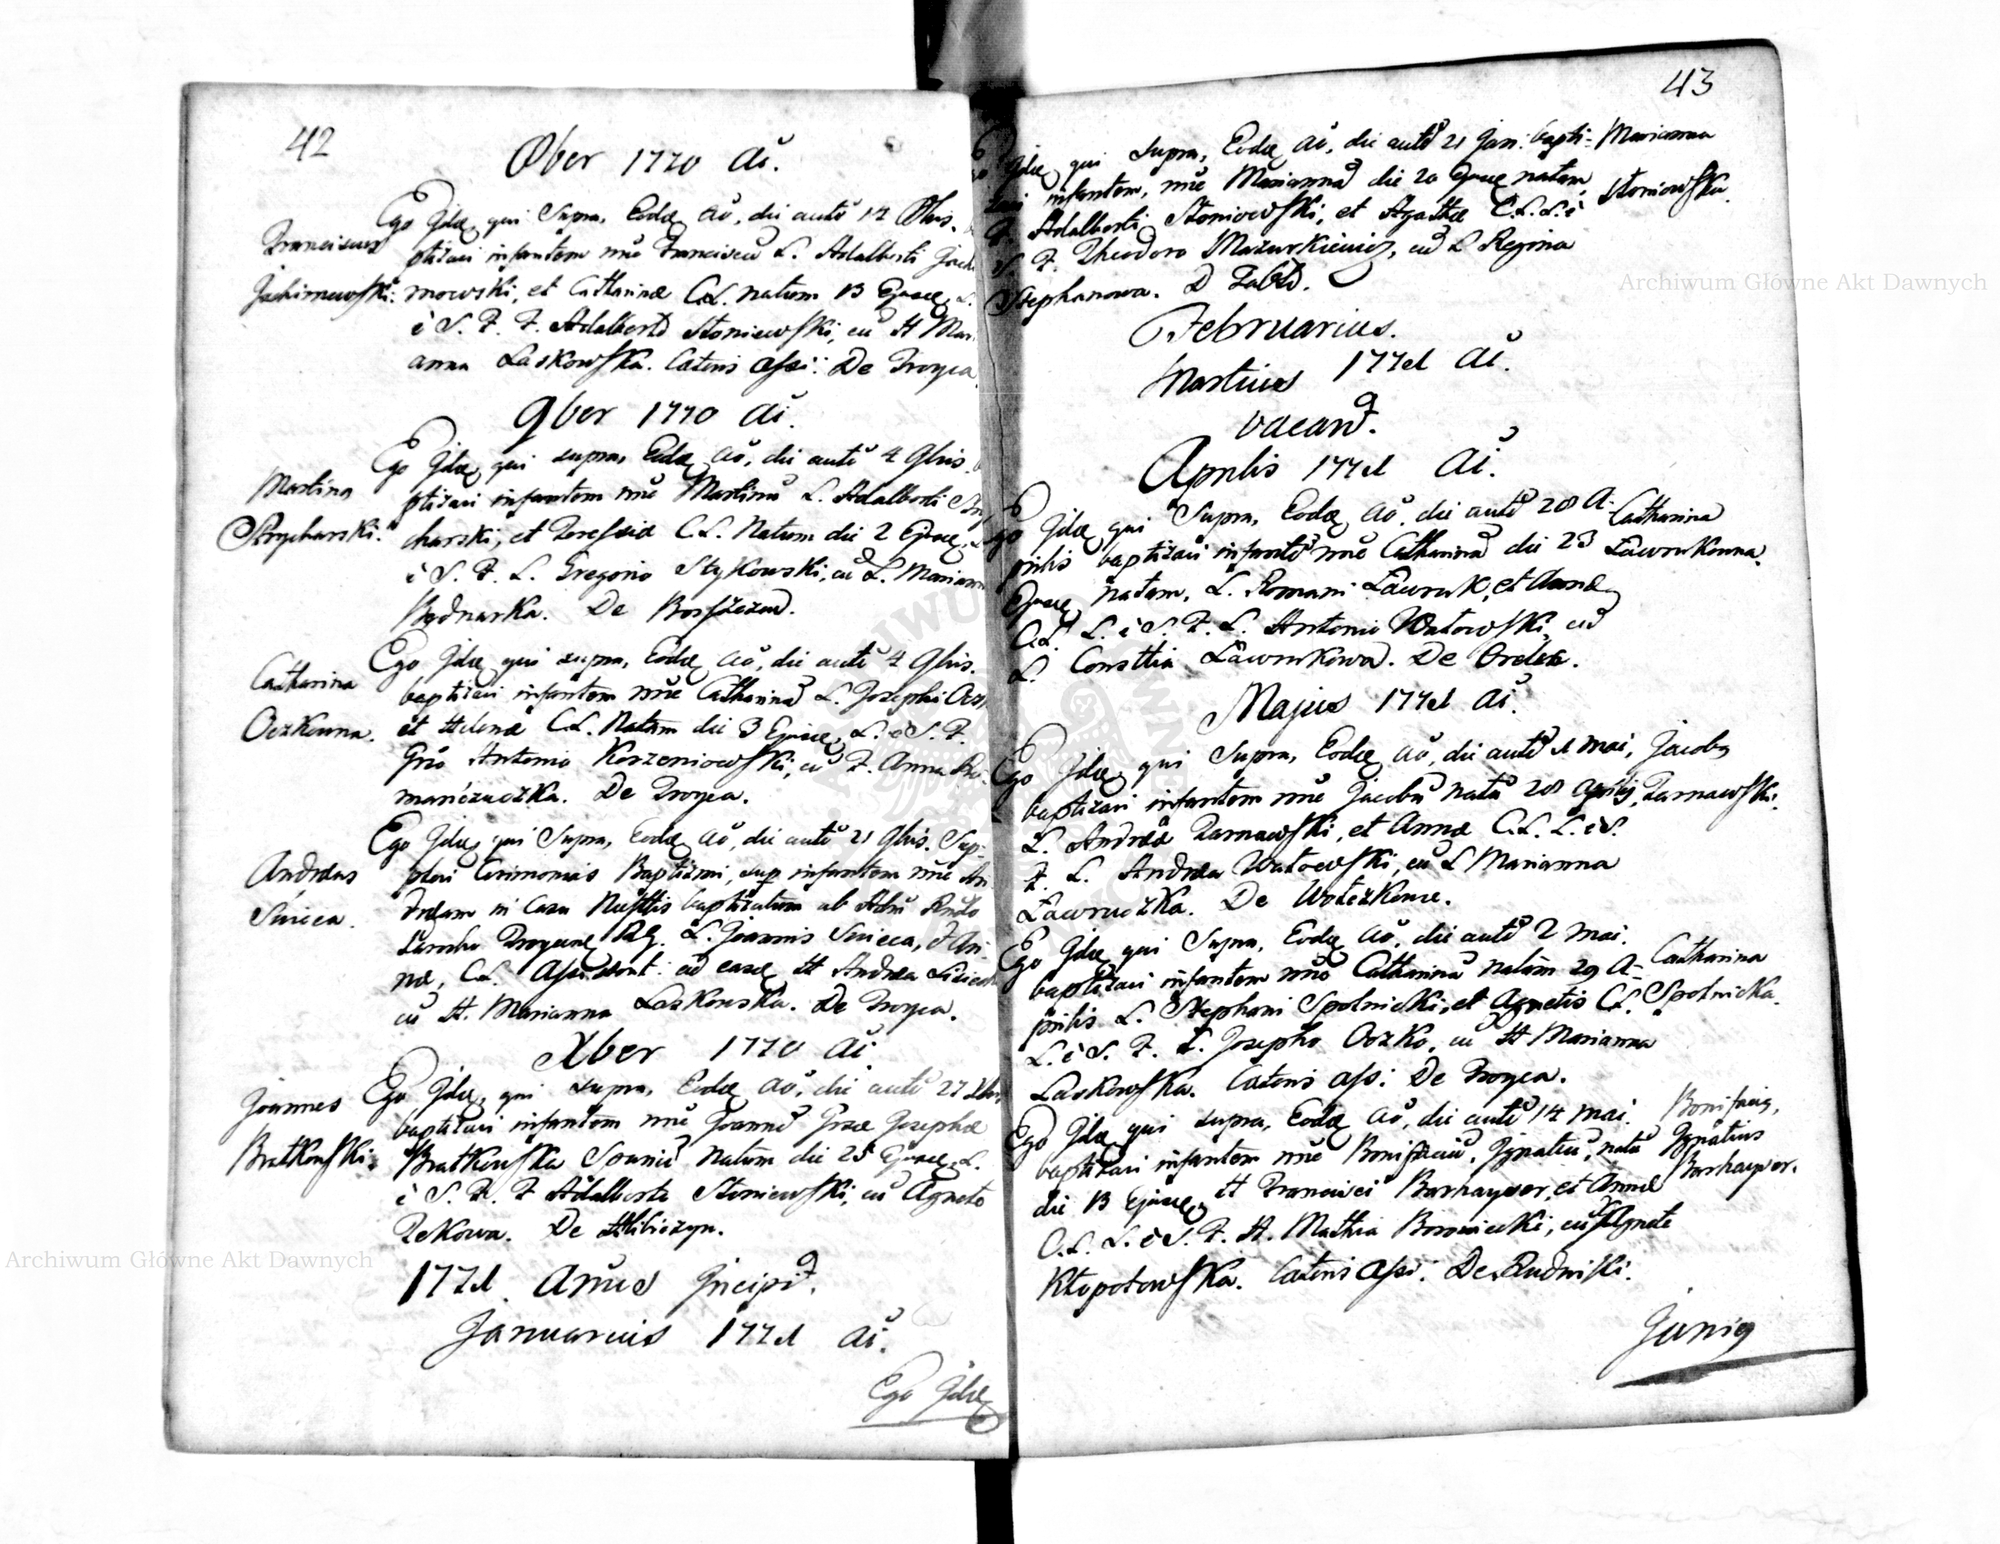 42
8ber 1770 Ai.
Franciscus
Jachimowski.
Ego Idem qui Supra, Eodem Aō, die autē 14 8bris.
ptizavi infantem nūe Franciscū L. Adalberti Jach
mowski, et Catharinæ C.L. natum 13 Ejusdē, L.
ē S. F. F. Adalberto Stoniewski, cū H Mar
anna Laskowska. Cæteris assi: De Troyca
9ber 1770 Ai.
Martinus
Strycharski.
Ego Idem qui supra, Eodem Aō, die autē 4 9bris.
ptizavi infantem nūe Martinū L. Adalberti Stry
charski, et Teressiæ C.L. Natum die 2 Ejusdē,
ē S. F. L. Gregorio Stykowski, cū L. Mariann
Bednarka. De
Catharina
Oczkowna.
Ego Idem qui supra, Eodem Aō, die autē 4 9bris.
baptizavi infantem nūe Catharinā L. Josephi Ocz
et Helenæ C.L. Natam die 3 Ejusdē, L. ē S. F.
Gño Antonio Korzeniowski, cū F. Anna
De Troyca.
Andreas
Ego Idem qui Supra, Eodem Aō, die autē 21 9bris. Sup-
plevi Cerimonias Baptizmi, sup infantem nūe An
dream in Casu Nessitis baptizatum ab
L. Joannis
næ, C.L. H Andrea
cū H. Marianna Laskowska. De Troyca.
Xber 1770 Ai
Joannes
Bratkowski.
Ego Idem, qui supra, Eodem Aō, die autē 27 Xbris
baptizavi infantem nūe Joannē Gsæ Josephæ
Bratkowska Natum die 25 Ejusdē, L.
ē S. F. F Adalberto Stoniewski, cū Agnete
De
1771. Anūs Incipit.
Januarius 1771 Ai.
Ego Idem
43
Marianna
Stoniowska.
Ego Idem qui Supra, Eodem Aō, die autē 21 Jan: bapti-
zavi infantem, nūe Mariannā die 20 Ejusdē natam,
F. Adalberti Stoniowski, et Agathæ C.L. L. ē
S. F. Theodoro Mazurkiewicz, cū L Regina
Stephanowa. D
Februarius.
Martius 1771 Ai.
vacant.
Aprilis 1771 Ai.
Catharina
Ławrukowna.
Ego Idem qui Supra, Eodem Aō. die autē 28 A-
prilis baptizavi infantē nūe Catharinā die 23
Ejusdē natam, L. Romani Ławruk, et Annæ
C.L. L. ē S. F. L. Antonio Watowski, cū
L. Consttia Ławrukowa. De
Majus 1771 Ai.
Jacobus
Tarnawski.
Ego Idem qui Supra, Eodem Aō, die autē 1 mai,
baptizavi infantem nūe Jacobū natū 28 Aprilis,
L. Andreæ Tarnawski, et Annæ C.L. L. ē S.
F. L. Andrea Watowski, cū L Marianna
Ławruczka. De
Catharina
Spolnicka.
Ego Idem qui Supra, Eodem Aō, die autē 2 mai.
baptizavi infantem nūe Catharinā natām 29 A-
prilis L. Stephani Spolnicki, et Agnetis C.L.
L. ē S. F. L. Josepho Oczko, cū H Marianna
Laskowska. Cæteris assi: De Troyca.
Bonifacius,
Ignatius
Barhayser.
Ego Idem qui supra, Eodem Aō, die autē 14 mai.
baptizavi infantem nūe Bonifaciū, Ignatiū, natū
die 13 Ejusdē H Francisci Barhayser, et Annæ
C.L. L. ē S. F. H. Mathia Borowiecki, cū Agnete
Kłopotowska. Cæteris assi: De Rudniki.
Junius
Archiwum Główne Akt Dawnych
Archiwum Główne Akt Dawnych